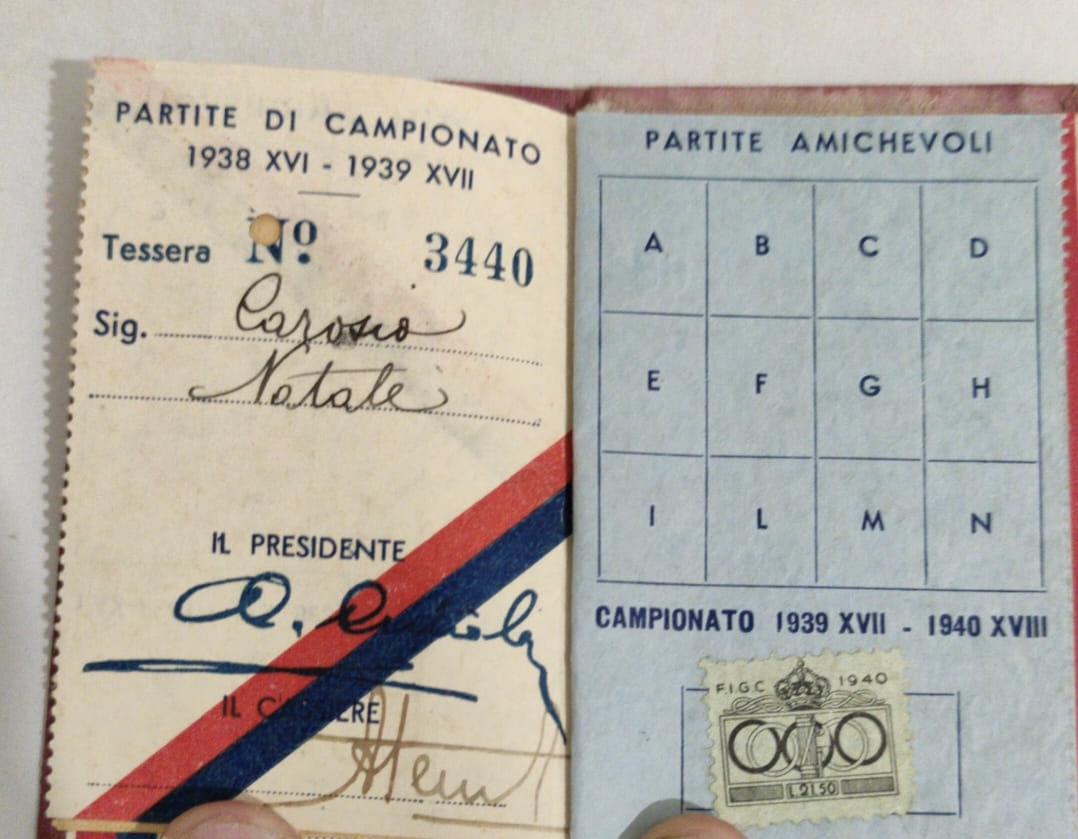 PARTITE DI CAMPIONATO
1938 XVI - 1939 XVII
Tessera Nº 3440
Sig. Carosio
Natale
IL PRESIDENTE
IL CASSIERE
PARTITE AMICHEVOLI
A B C D
E F G H
I L M N
CAMPIONATO 1939 XVII - 1940 XVIII
F.I.G.C 1940
L.21.50